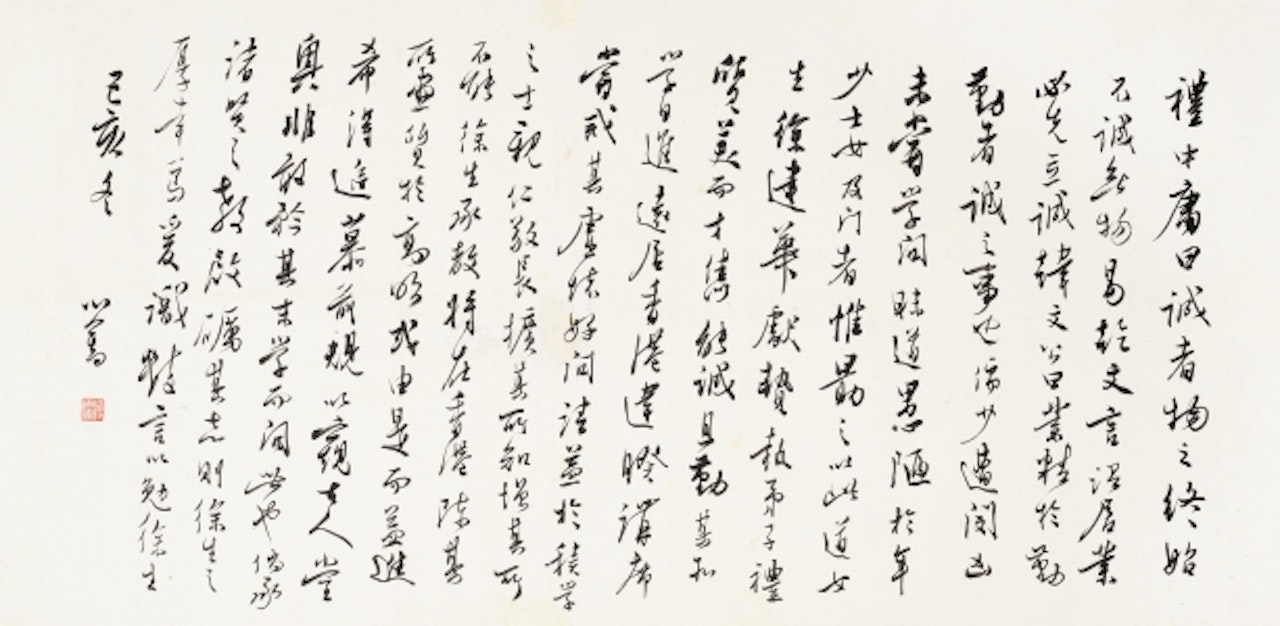 禮中庸曰誠者物之終始
不誠無物易乾文言謂居業
必先立誠韓文公曰業精於勤
勤者誠之事也儒少遭閔凶
未嘗學問昧道愚陋於年
少士女及门者惟勗之以此道女
生徐建華獻贄執弟子禮
質美而才雋能誠且勤業和
學日進遠居香港違暌講席
嘗戒其虛懷好问請益於積學
之士親仁敬長擴其所知增其所
不能徐生承教將在香港陳其
所畫質於高明或由是而益進
希漢追慕前規以窺古人堂
奧非敢矜其末學而闻世也倘承
諸賢之教啟礪其志則徐生之
厚幸焉爰識數言以勉徐生
己亥冬
心畬